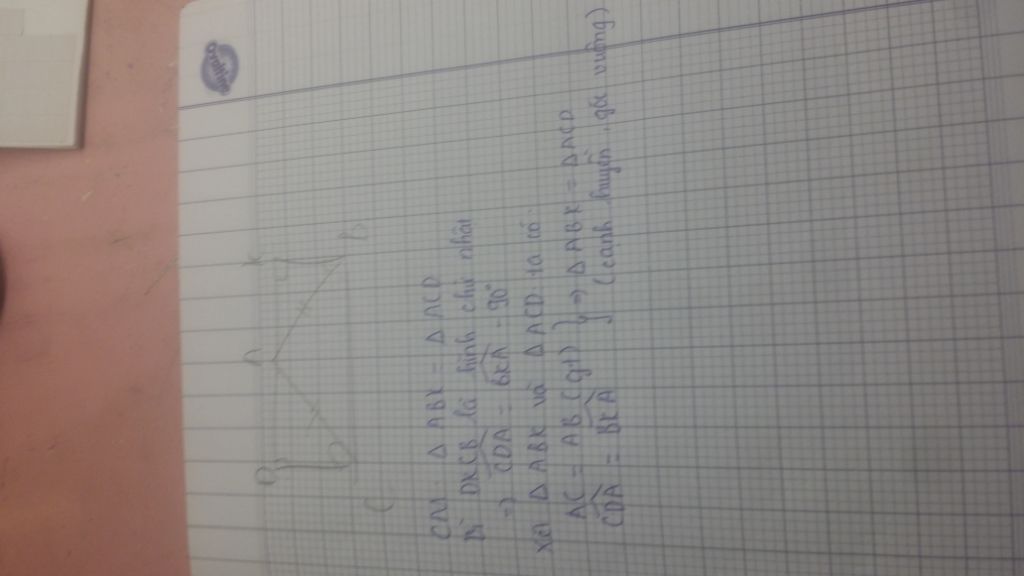 D A K
C B
CM Δ ABK = Δ ACD
Vì DKCB là hình chữ nhật
=> CDA = BKA = 90°
Xét Δ ABK và Δ ACD ta có:
AC = AB (gt) } => Δ ABK = Δ ACD
CDA = BKA (cạnh huyền, góc vuông)